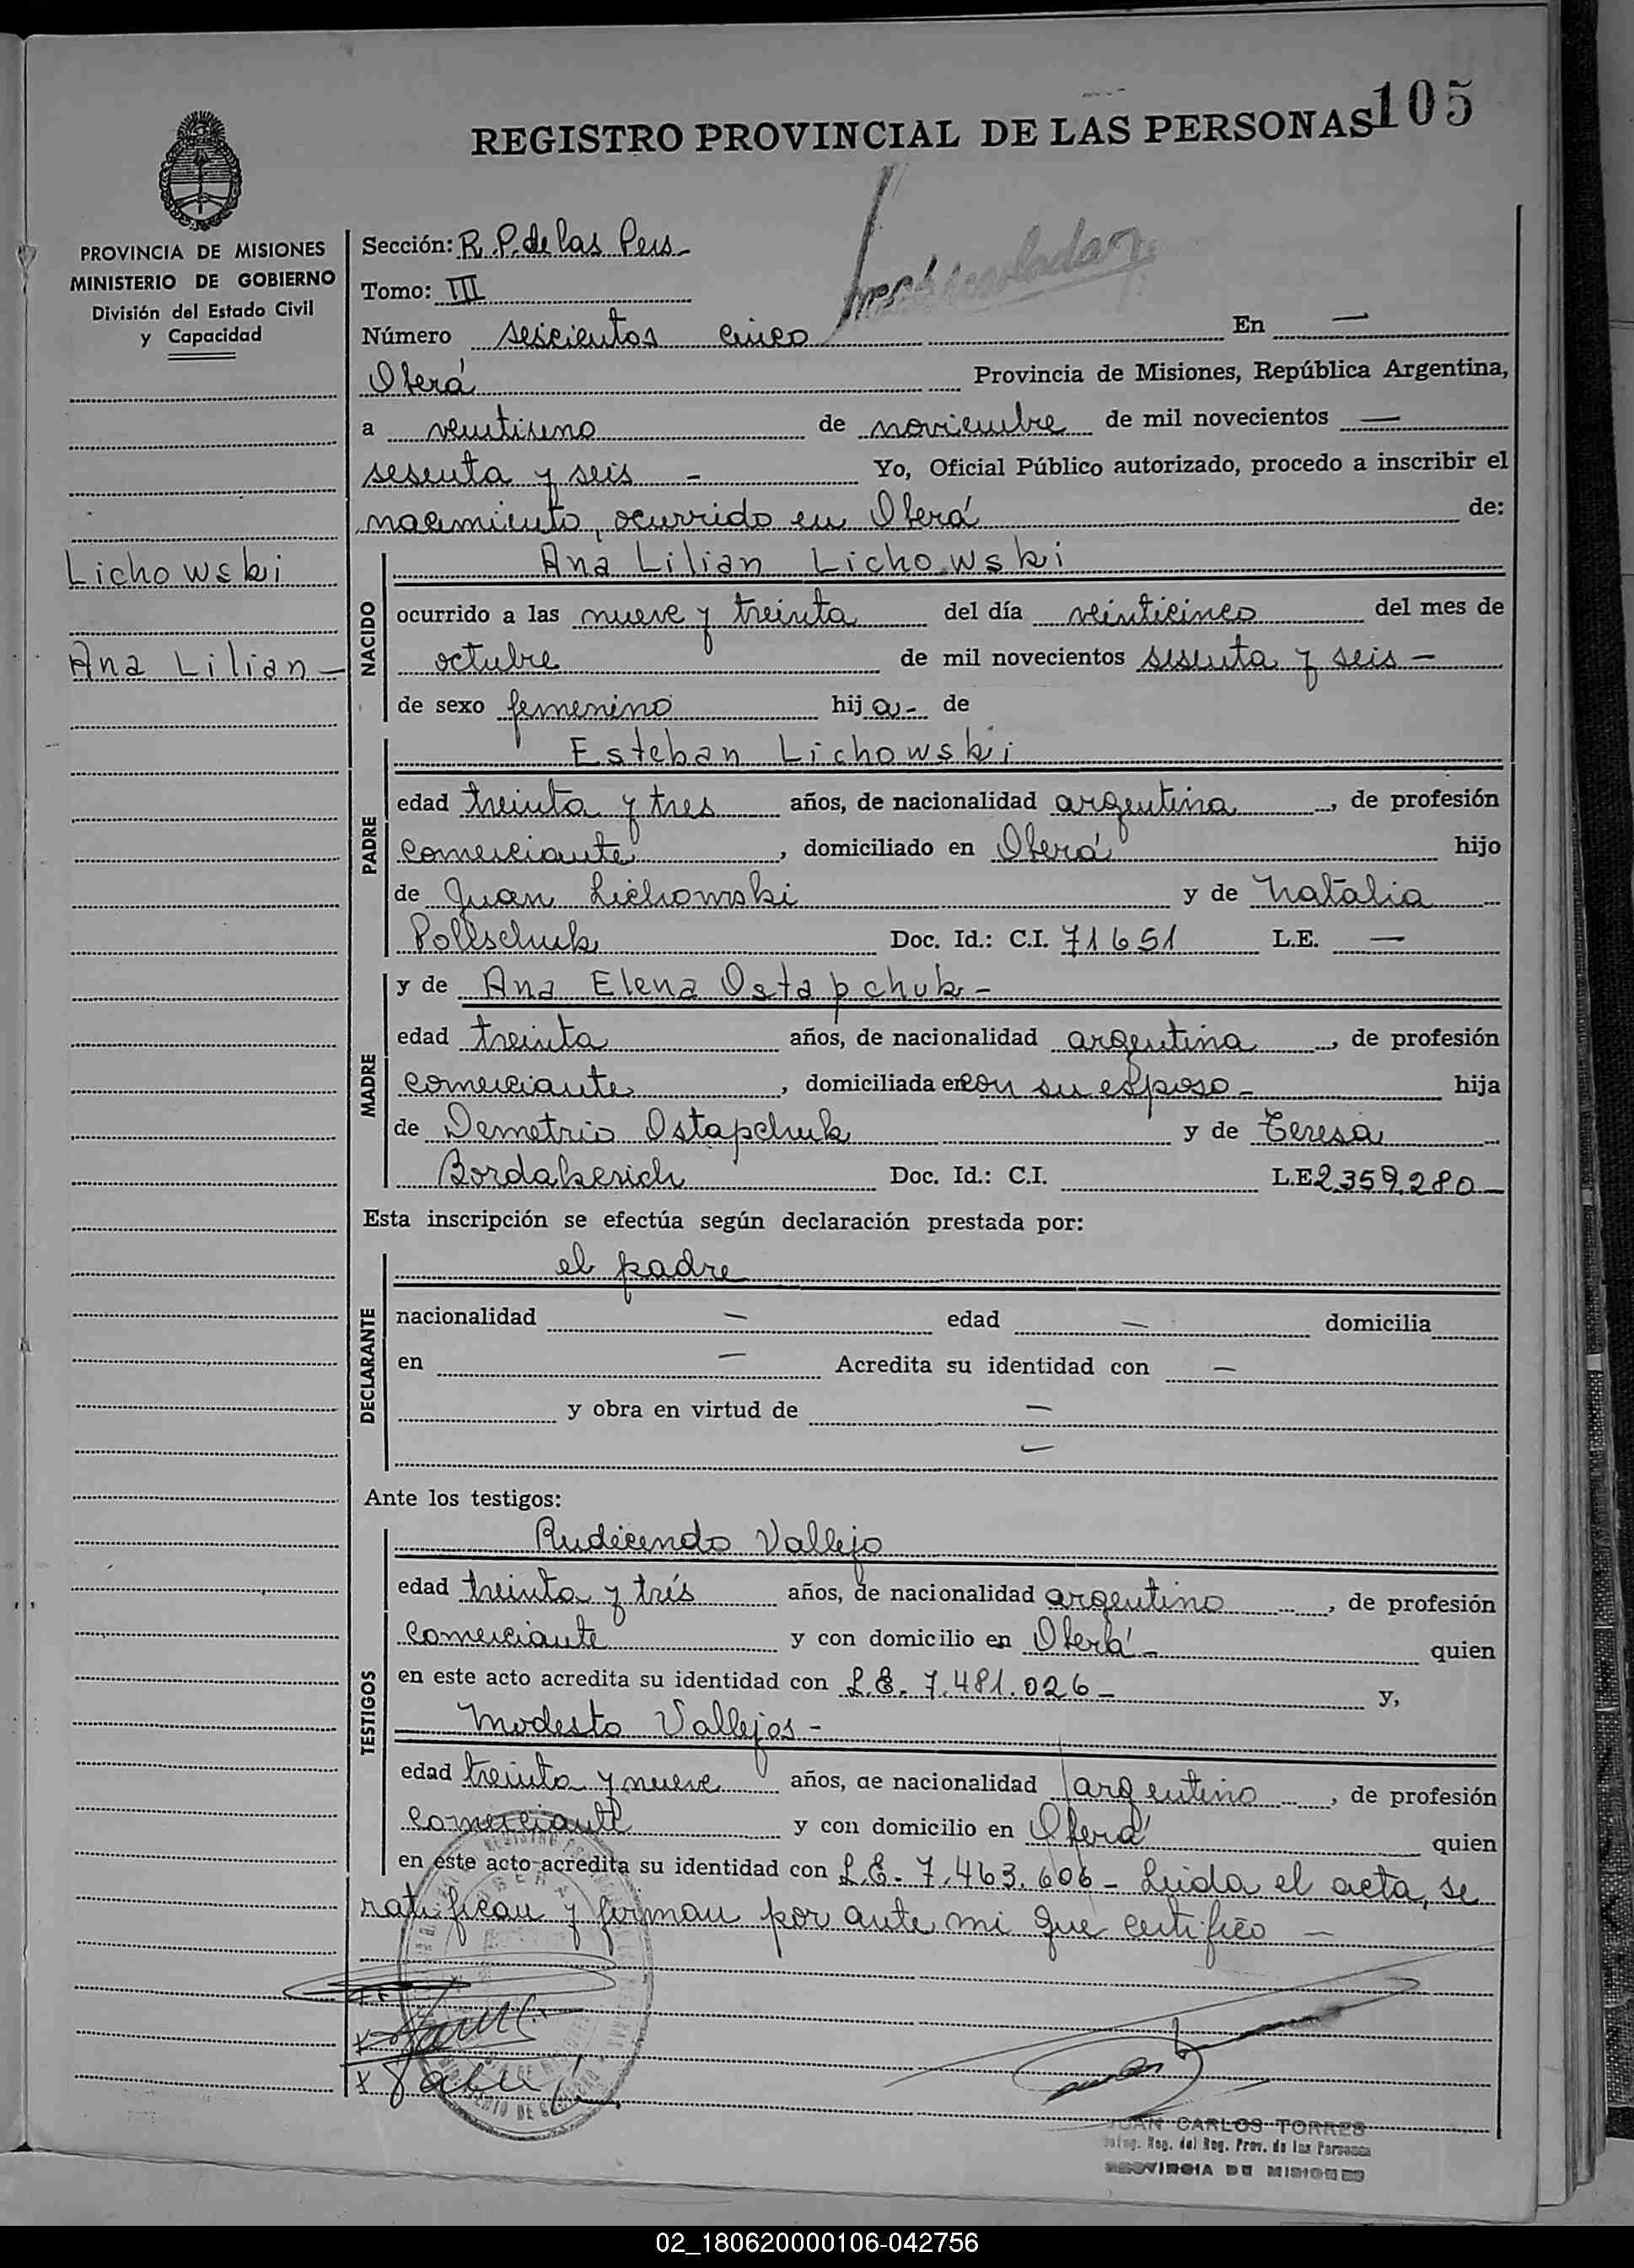 105
REGISTRO PROVINCIAL DE LAS PERSONAS
PROVINCIA DE MISIONES
MINISTERIO DE GOBIERNO
División del Estado Civil
y Capacidad
Lichowski
Ana Lilian -
Sección: R. P. de las Pers
Tomo: III
Número seiscientos cinco En —
Oberá Provincia de Misiones, República Argentina,
a veintiuno de noviembre de mil novecientos —
sesenta y seis - Yo, Oficial Público autorizado, procedo a inscribir el
nacimiento, ocurrido en Oberá de:
NACIDO
Ana Lilian Lichowski
ocurrido a las nueve y treinta del día veinticinco del mes de
octubre de mil novecientos sesenta y seis -
de sexo femenino hija - de
PADRE
Esteban Lichowski
edad treinta y tres años, de nacionalidad argentina, de profesión
comerciante, domiciliado en Oberá hijo
de Juan Lichowski y de Natalia
Polischuk Doc. Id.: C.I. 71651 L.E. —
MADRE
y de Ana Elena Ostapchuk -
edad treinta años, de nacionalidad argentina, de profesión
comerciante, domiciliada en con su esposo - hija
de Demetrio Ostapchuk y de Teresa
Doc. Id.: C.I. L.E 2.359.280 -
Esta inscripción se efectúa según declaración prestada por:
DECLARANTE
el padre
nacionalidad — edad — domicilia
en — Acredita su identidad con —
y obra en virtud de —
—
Ante los testigos:
TESTIGOS
Rudecendo Vallejo
edad treinta y trés años, de nacionalidad argentino, de profesión
comerciante y con domicilio en Oberá - quien
en este acto acredita su identidad con L.E. 7.481.026 - y,
Modesto Vallejos -
edad treinta y nueve años, de nacionalidad argentino, de profesión
comerciante y con domicilio en Oberá quien
en este acto acredita su identidad con L.E. 7.463.606 - Leida el acta, se
ratifican y firman por ante mi que certifico —
JUAN CARLOS TORRES
Reg. del Reg. Prov. de las Personas
PROVINCIA DE MISIONES
02_180620000106-042756